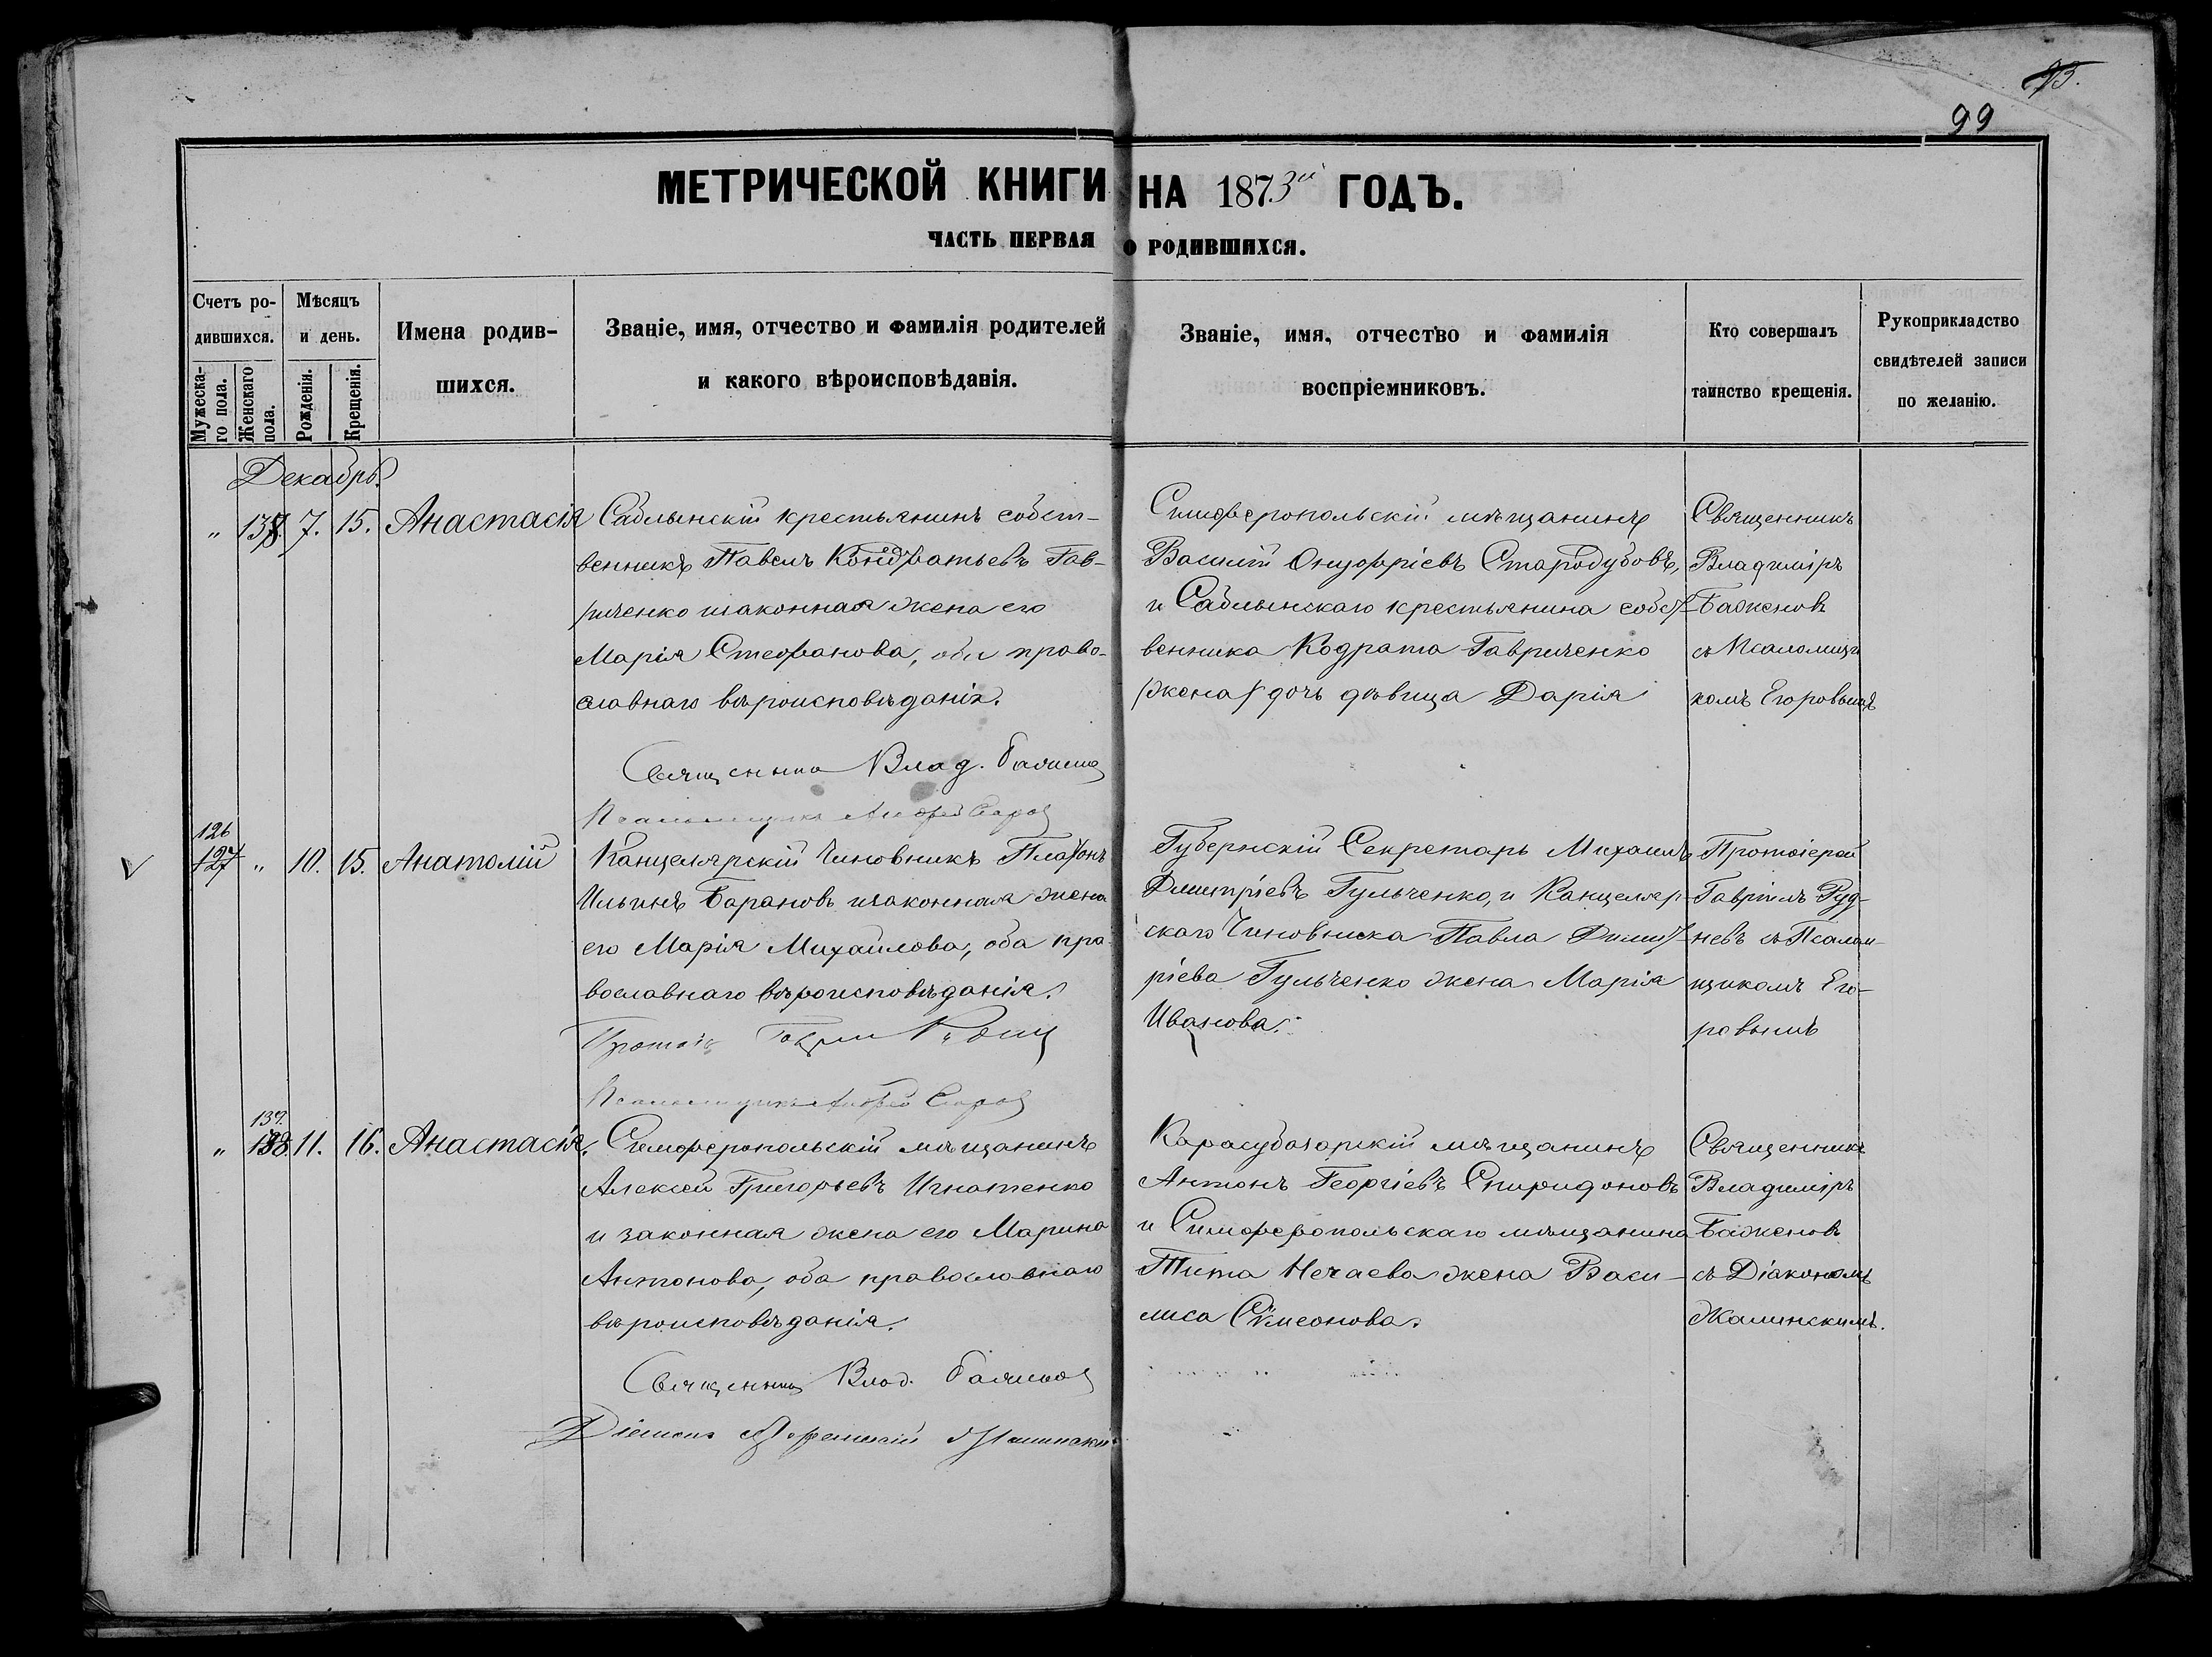 99
МЕТРИЧЕСКОЙ КНИГИ НА 1873й ГОДЪ.
ЧАСТЬ ПЕРВАЯ О РОДИВШИХСЯ.
Счетъ ро-
дившихся.
Мужеска-
го пола.
Женскаго
пола.
Мѣсяцъ
и день.
Рожденія.
Крещенія.
Имена родив-
шихся.
Званіе, имя, отчество и фамилія родителей
и какого вѣроисповѣданія.
Званіе, имя, отчество и фамилія
воспріемниковъ.
Кто совершалъ
таинство крещенія.
Рукоприкладство
свидѣтелей записи
по желанію.
Декабрь.
" 138. 7. 15. Анастасія
Саблынскій крестьянинъ собст-
венникъ Павелъ Кондратьевъ Гав-
риченко изаконная жена его
Марія Стефанова, оба право-
славнаго вѣроисповѣданія.
Симферопольскій мѣщанинъ
Василій Онуфріевъ Стародубовъ,
и Саблынскаго крестьянина собст-
венника Кодрата Гавриченко
(жена) дочь дѣвица Дарія
Священникъ
Владиміръ
Баженовъ
съ Псаломщи
комъ Егоровымъ
Священникъ Влад. Баженовъ
Псаломщикъ Андрей Егоровъ
126
127 " 10. 15. Анатолій
Канцелярскій Чиновникъ Платонъ
Ильинъ Барановъ изаконная жена
его Марія Михайлова, оба пра
вославнаго вѣроисповѣданія.
Губернскій Секретарь Михаилъ
Димитріевъ Гульченко, и Канцеляр-
скаго Чиновника Павла Димит-
ріева Гульченко жена Марія
Иванова.
Протоіерей
Гавріилъ Руд-
невъ съ Псалом-
щикомъ Его-
ровымъ
Псаломщикъ Андрей Егоровъ
139.
" 138. 11. 16. Анастасія.
Симферопольскій мѣщанинъ
Алексѣй Григорьевъ Игнатенко
и законная жена его Марина
Антонова, оба православнаго
вѣроисповѣданія.
Карасубазарскій мѣщанинъ
Антонъ Георгіевъ Спиридоновъ
и Симферопольскаго мѣщанина
Тита Нечаева жена Васи-
лиса Сѵмеонова.
Священникъ
Владиміръ
Баженовъ
съ Діакономъ
Жалинскимъ.
Священникъ Влад. Баженовъ
Діаконъ